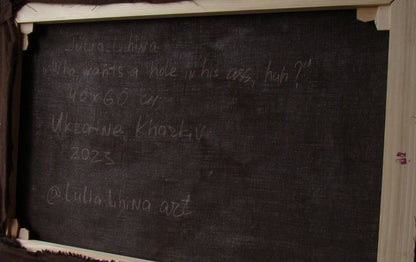 Julia Lihina
"Who wants a hole in his ass, huh?"
40x60 cm
Ukraine, Kharkiv
2023
@lulia.lihina.art